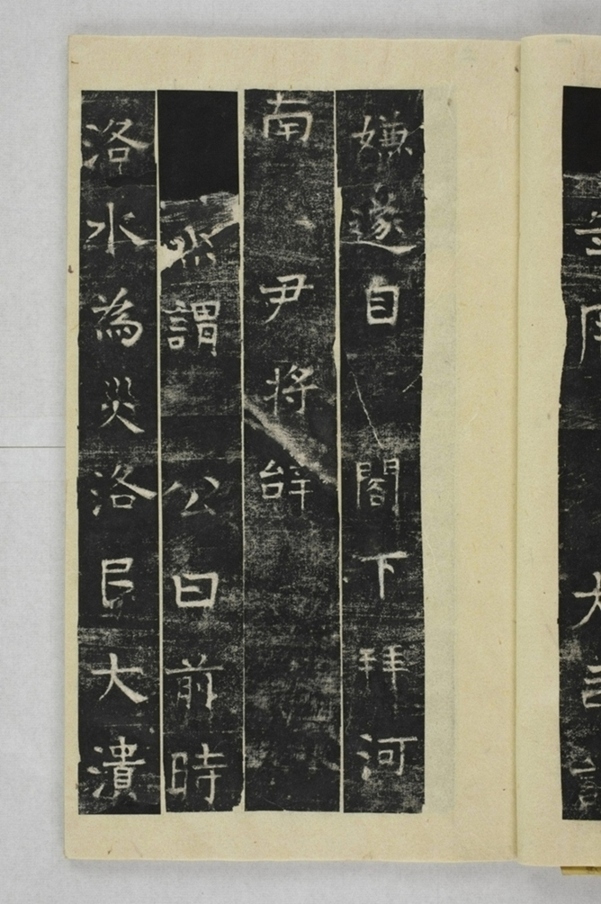 嫌遂自閤下拜河
南尹将辝
謂公曰前時
洛水為災洛民大潰